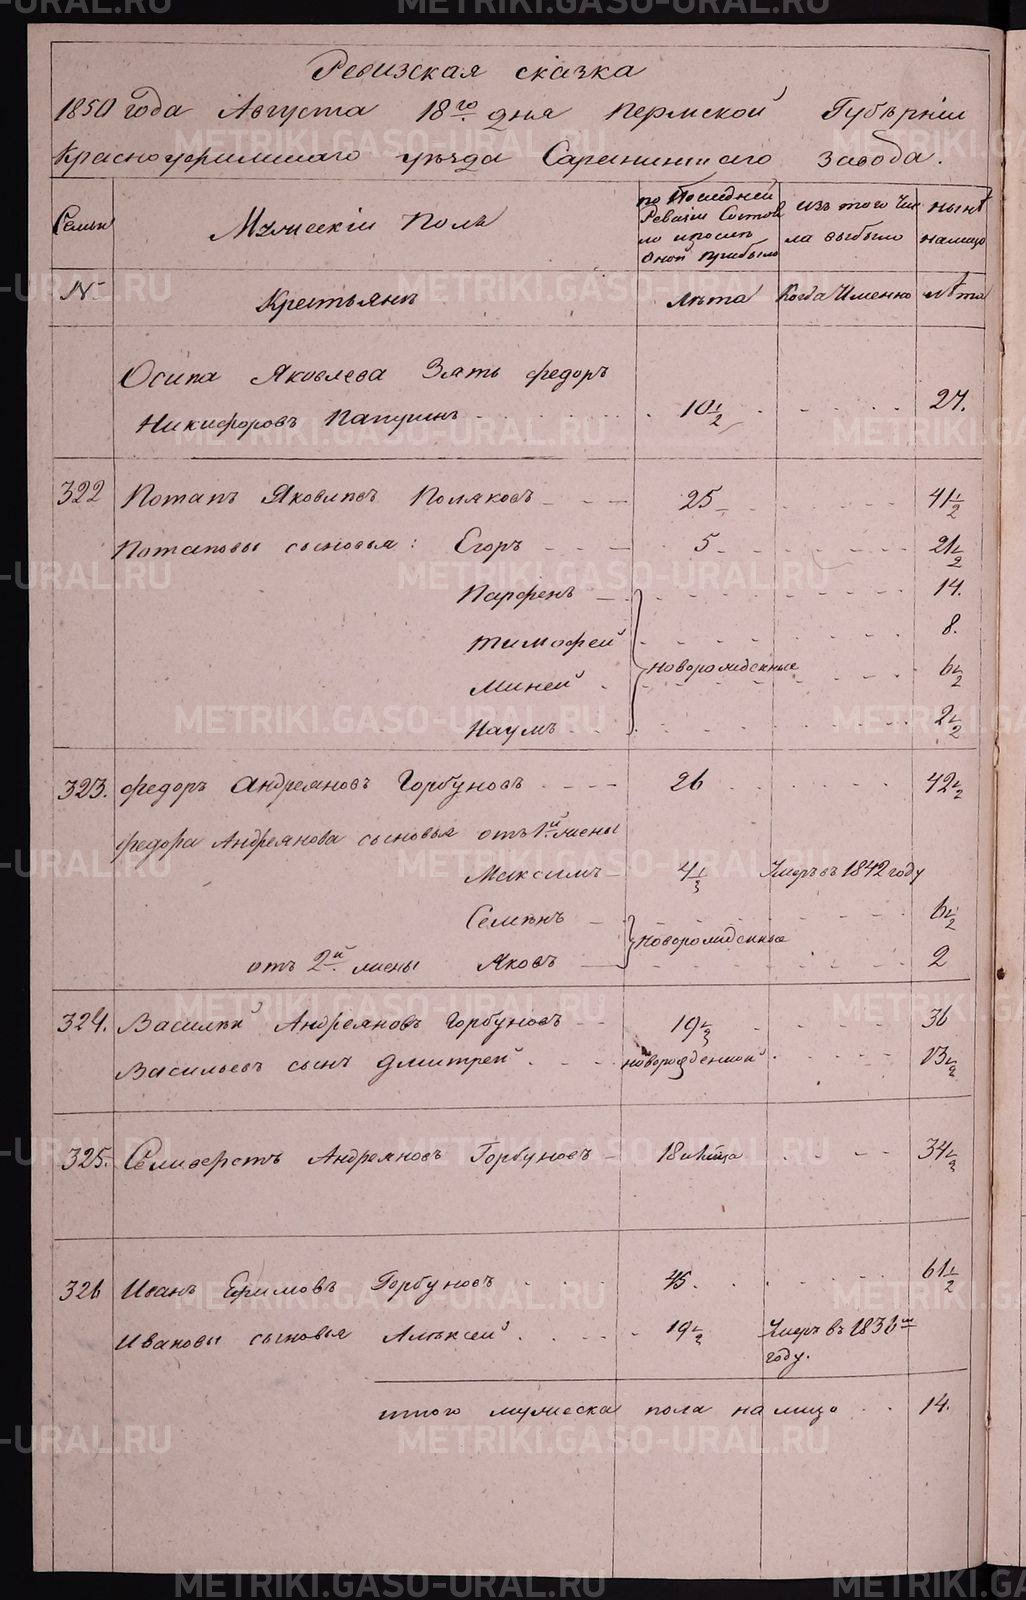 Ревизская сказка
1850 года Августа 18го дня Пермской Губернiи
Красноуфимскаго уезда Саранинскаго завода.
Семьи
Мужескiй Полъ
по Последней Ревизiи Состояло и после оной прибыло
изъ того числа выбыло
ныне налицо
№
Крестьянъ
Лета
Когда Именно
лета
Осипа Яковлева Зять федоръ
Никифоровъ Папушинъ 10 1/2 27.
322 Потапъ Яковлевъ Поляковъ 25 41 1/2
Потаповы сыновья: Егоръ 5 21 1/2
Парфенъ 14.
Тимофей 8.
Миней новорожденные 6 1/2
Наумъ 2 1/2
323. федоръ Андреяновъ Горбуновъ 26 42 1/2
федора Андреянова сыновья отъ 1й жены
Максимъ 4 1/3 Умеръ въ 1842 году
Семенъ 6 1/2
новорожденные
отъ 2й жены Яковъ 2
324. Василiй Андреяновъ Горбуновъ 19 1/2 36
Васильевъ сынъ Дмитрей новорожденной 13 1/2
325. Селиверстъ Андреяновъ Горбуновъ 18 34 1/2
326 Иванъ Ефимовъ Горбуновъ 45. 61 1/2
Ивановы сыновья Алексей 19 1/2 Умеръ въ 1836м
году.
итого мужеска пола на лицо 14.
METRIKI.GASO-URAL.RU